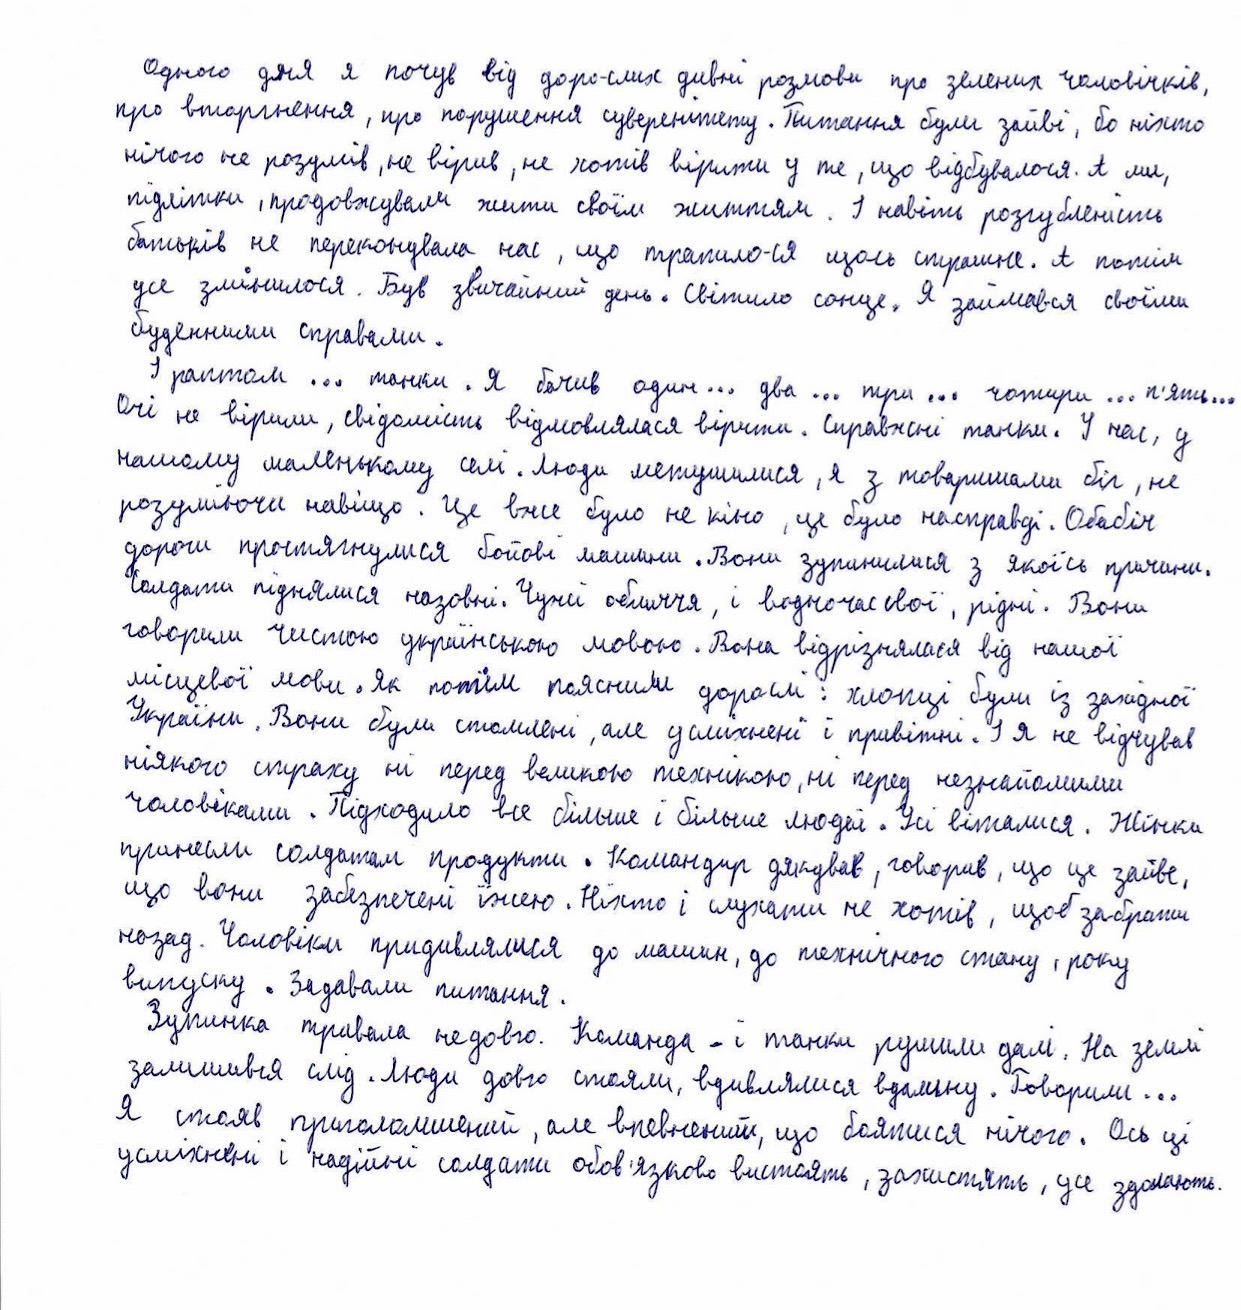 Одного дня я почув від доро-слих дивні розмови про зелених чоловічків,
про вторгнення, про порушення суверенітету. Питання були зайві, бо ніхто
нічого не розумів, не вірив, не хотів вірити у те, що відбувалося. А ми,
підлітки, продовжували жити своїм життям. І навіть розгубленість
батьків не переконувала нас, що трапило-ся щось страшне. А потім
усе змінилося. Був звичайний день. Світило сонце. Я займався своїми
буденними справами.
І раптом ... танки. Я бачив один ... два ... три ... чотири ... п'ять...
Очі не вірили, свідомість відмовлялася вірити. Справжні танки. У нас, у
нашому маленькому селі. Люди метушилися, я з товаришами біг, не
розуміючи навіщо. Це вже було не кіно, це було насправді. Обабіч
дороги простягнулися бойові машини. Вони зупинилися з якоїсь причини.
Солдати піднялися назовні. Чужі обличчя, і водночас свої, рідні. Вони
говорили чистою українською мовою. Вона відрізнялася від нашої
місцевої мови. Як потім пояснили дорослі: хлопці були із західної
України. Вони були стомлені, але усміхнені і привітні. І я не відчував
ніякого страху ні перед великою технікою, ні перед незнайомими
чоловіками. Підходило все більше і більше людей. Усі віталися. Жінки
принесли солдатам продукти. Командир дякував, говорив, що це зайве,
що вони забезпечені їжею. Ніхто і слухати не хотів, щоб забрати
назад. Чоловіки придивлялися до машин, до технічного стану, року
випуску. Задавали питання.
Зупинка тривала недовго. Команда - і танки рушили далі. На землі
залишився слід. Люди довго стояли, вдивлялися вдалину. Говорили ...
Я стояв приголомшений, але впевнений, що боятися нічого. Ось ці
усміхнені і надійні солдати обов'язково вистоять, захистять, усе здолають.